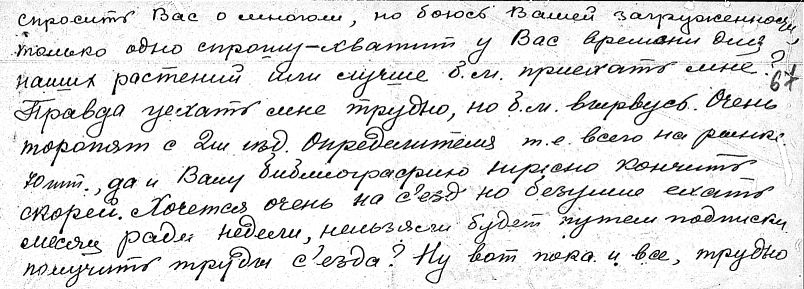 спросить Вас о многом, но боюсь Вашей загруженности,
только одно спрошу – хватит у Вас времени для
наших растений или лучше б.м. приехать мне?
67
Правда уехать мне трудно, но б.м. вырвусь. Очень
торопят с 2м изд. Определителя т.е. всего на
10 шт., да и Вашу библиографию нужно кончить
скорей. Хочется очень на с'езд но безумие ехать
месяц ради недели, нельзя ли будет путем подписки
получить труды с'езда? Ну вот пока и все, трудно